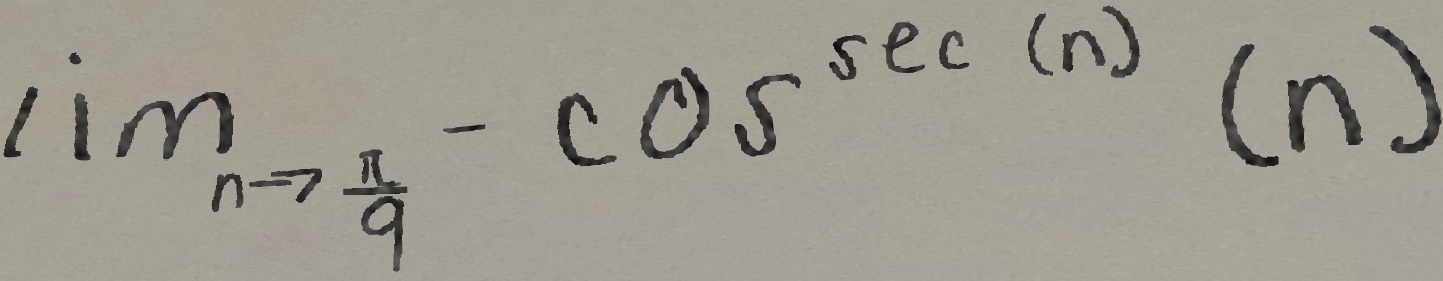 lim_{n→\frac{π}{9}} - cos^{sec (n)} (n)